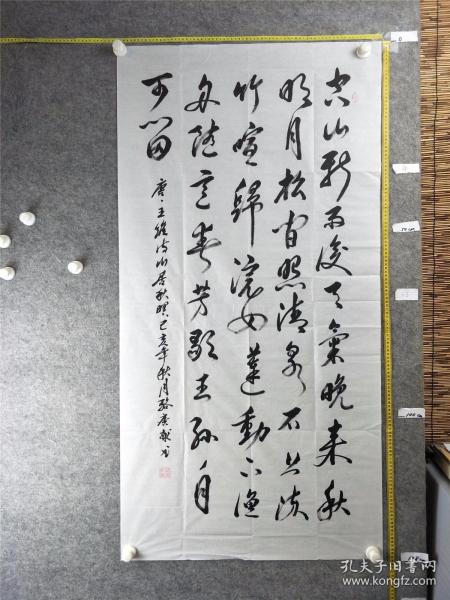 空山新雨後天氣晚来秋
明月松间照清泉石上流
竹喧歸浣女蓮動下渔
舟随意春芳歇王孙自
可留
唐·王维诗山居秋暝·己亥年秋月
孔夫子旧书网
www.kongfz.com